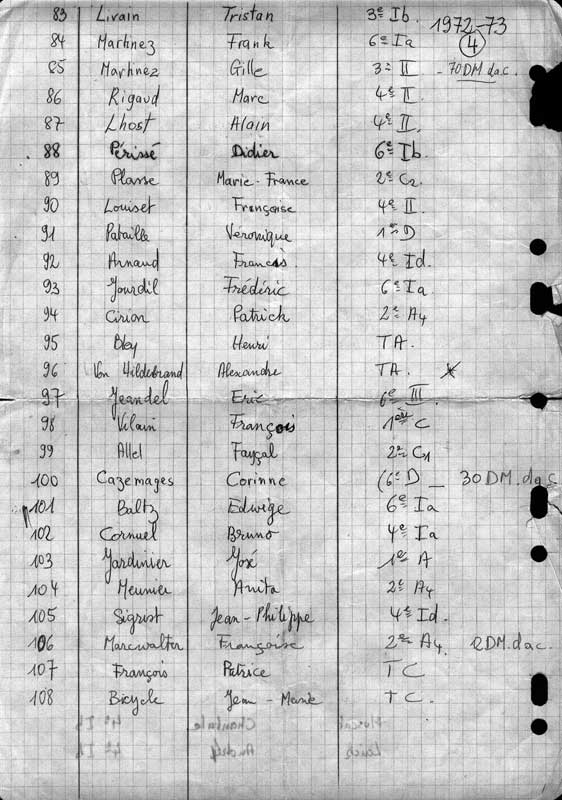 83 Livain Tristan 3e Ib. 1972-73
84 Martinez Frank 6e Ia 4
85 Martinez Gille 3e II - 70DM d.a.c.
86 Rigaud Marc 4e II.
87 Lhost Alain 4e II.
88 Périssé Didier 6e Ib.
89 Plasse Marie-France 2e C2.
90 Louiset Françoise 4e II.
91 Pataille Veronique 1e D
92 Arnaud Francis 4e Id.
93 Jourdil Frédéric 6e Ia
94 Cirion Patrick 2e A4
95 Bley Henri TA.
96 Von Hildebrand Alexandre TA.
97 Jeandel Eric 6e III
98 Vilain François 1ère C
99 Allel Fayçal 2e C1
100 Cazemages Corinne (6e D - 30 DM. d.a.c
101 Baltz Edwige 6e Ia
102 Cornuel Bruno 4e Ia
103 Jardinier José 1e A
104 Meunier Anita 2e A4
105 Sigrist Jean-Philippe 4e Id.
106 Marcwalter Françoise 2e A4. DM. d.a.c.
107 François Patrice TC
108 Bicycle Jean-Marie TC.